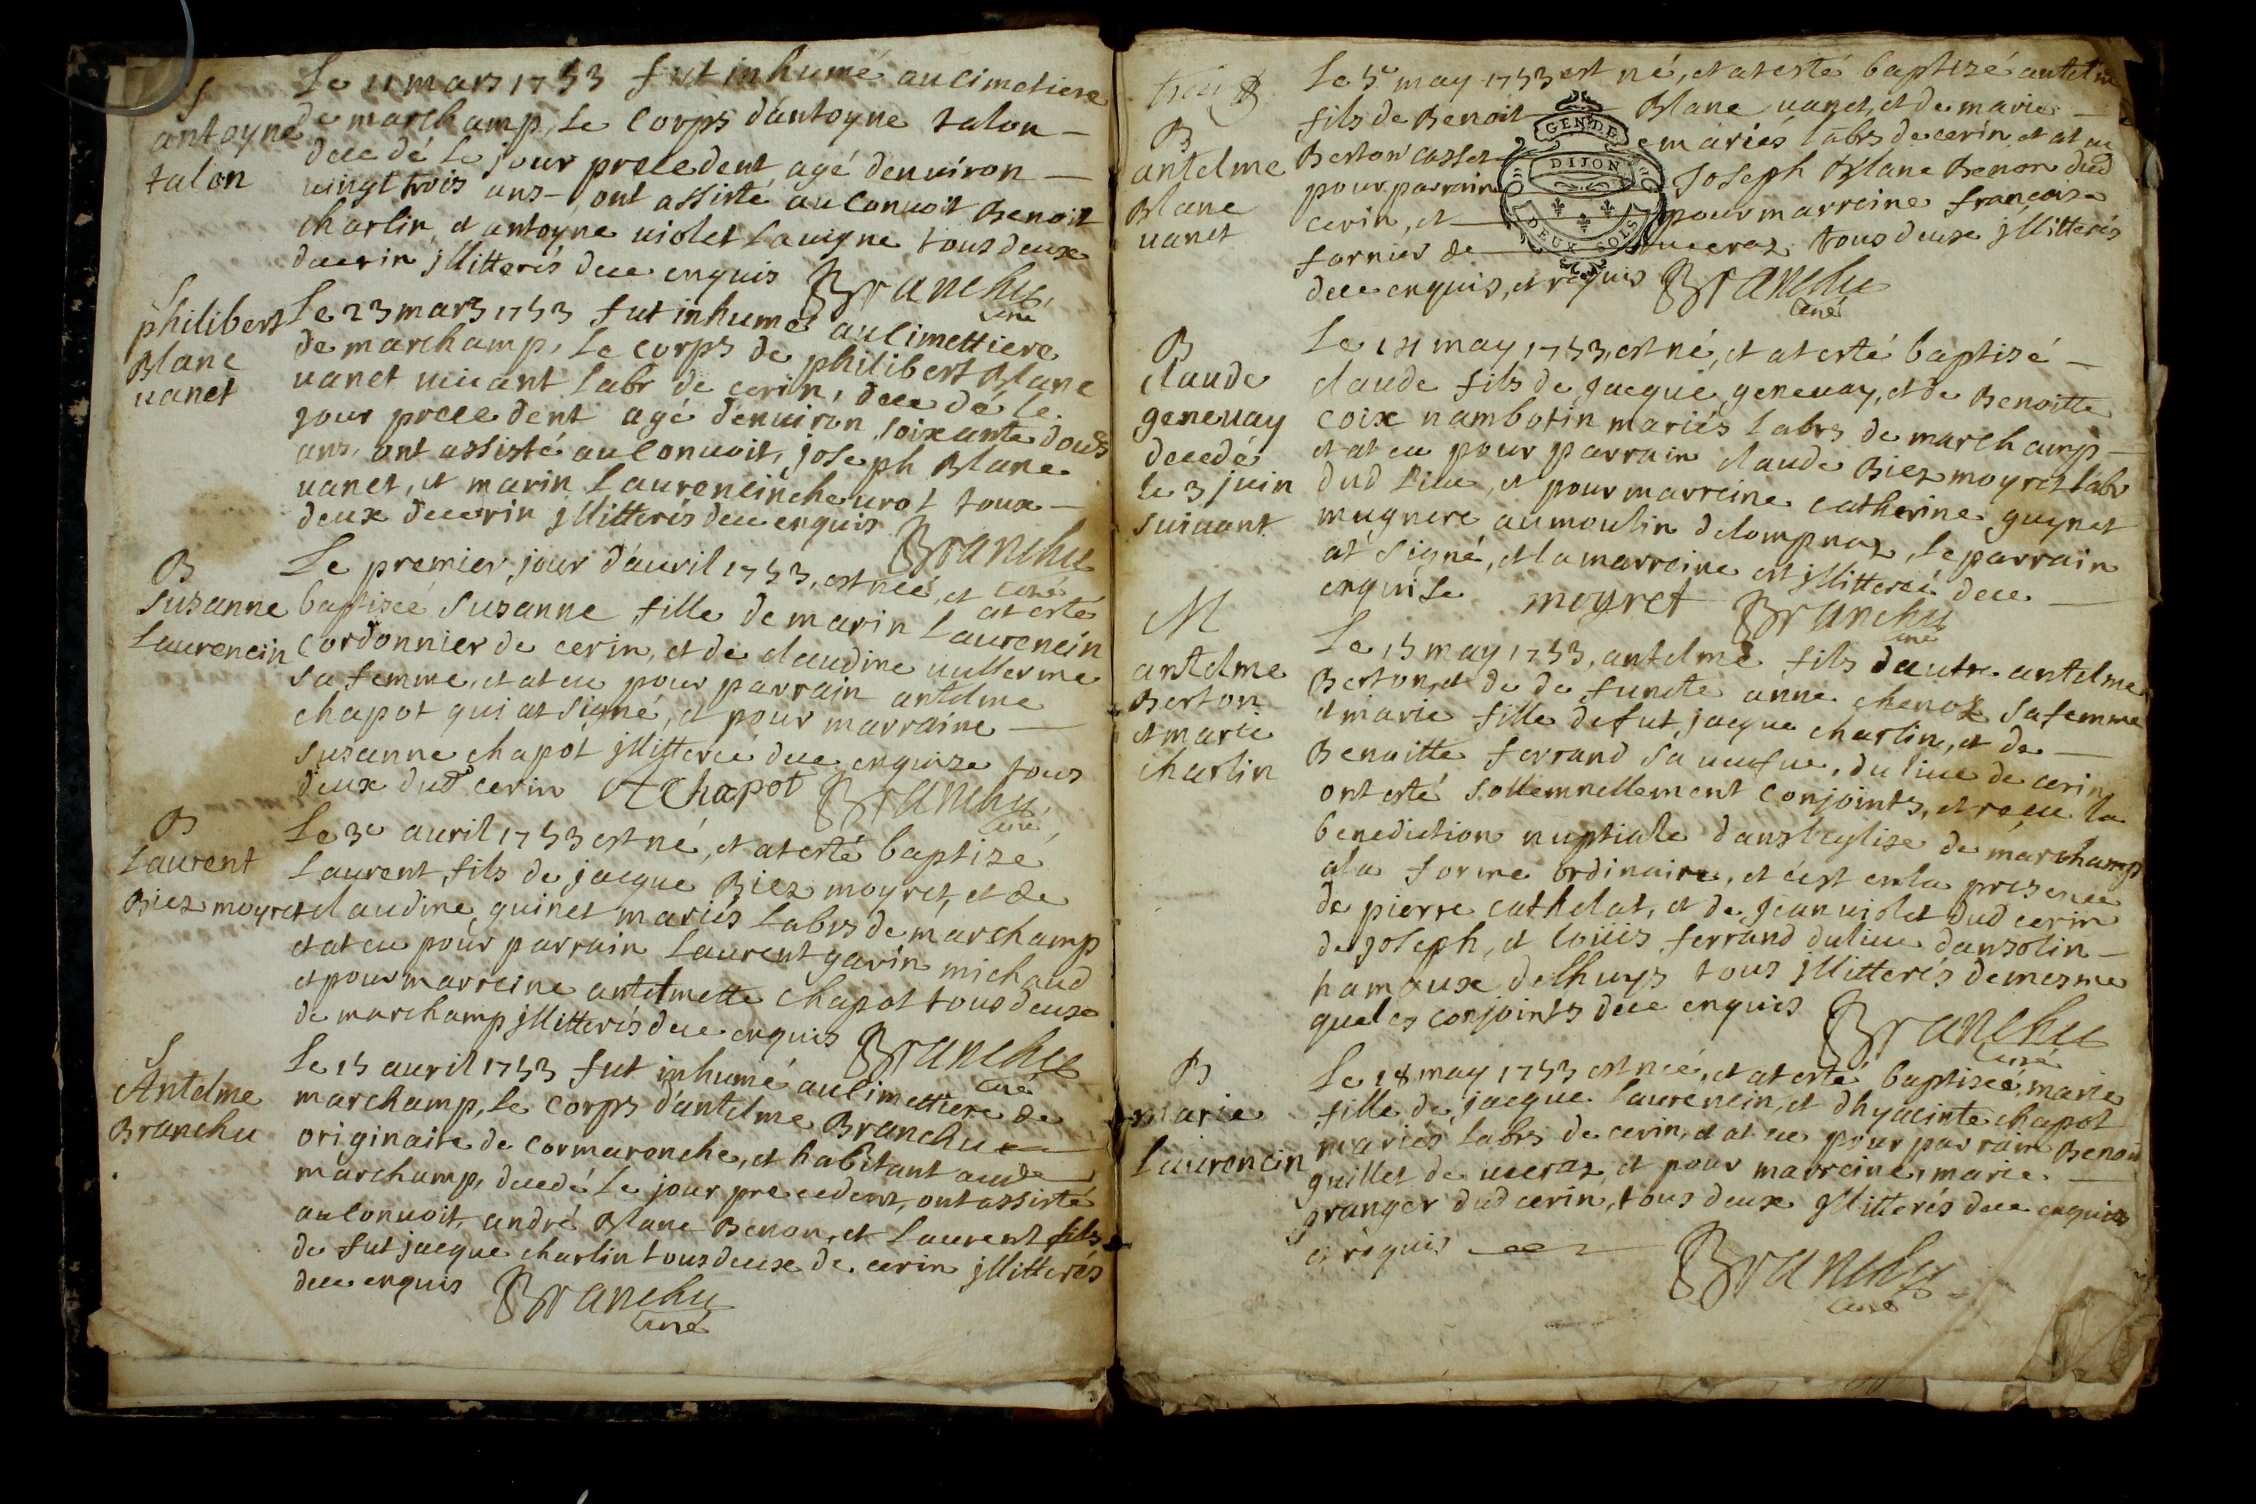 S
antoyne
talon
Le 11 mars 1753 fut inhumé au cimetiere
de marchamp, le corps dantoyne talon —
decedé le jour precedent, agé denuiron —
uingt trois ans – ont assisté au conuoit Benoit
charlin, et antoyne uiolet lauigne tous deux
decerin jllitterés dece enquis Branchu
curé
S
philibert
Blanc
uanet
Le 23 mars 1753 fut inhumé au cimettiere
de marchamp, le corps de philibert Blanc
uanet uiuant labr de cerin, decedé le
jour precedent agé denuiron soixante douse
ans, ont assisté au conuoit, joseph Blanc
uanet, et marin laurencin cheurot tous
deux decerin jllitterés dece enquis
Branchu
curé
B
Susanne
Laurencin
Le premier jour dauril 1753, est neé, et at esté
baptiseé susanne fille de marin laurencin
cordonnier de cerin, et de claudine uullerme
sa femme, et at eu pour parrain antelme
chapot qui at signé, et pour marraine —
susanne chapot jllittereé dece enquise tous
deux dud cerin A Chapot Branchu
curé
B
Laurent
Biez moyret
Le 3e auril 1753 est né, et at esté baptizé
Laurent, fils de jacque Biez moyret, et de
claudine guinet mariés labrs de marchamp
et at eu pour parrain laurent gavin michaud
et pour marreine antelmette chapot tous deux
de marchamp jllitterés dece enquis Branchu
curé
S
Antelme
Branchu
Le 15 auril 1753 fut inhumé au cimettiere de
marchamp, le corps dantelme Branchu
originaire de cormarenche, et habitant aud
marchamp, decedé le jour precedent, ont assisté
au conuoit, andré Blanc Benon, et laurent fils
de fut jacque charlin tous deux de cerin jllitterés
dece enquis Branchu
curé
B
antelme
Blanc
uanet
Le 5e may 1753 est né, et at esté baptizé antelme
fils de Benoit Blanc uanet, et de marie —
Berton casset mariés labrs de cerin, et at eu
pour parrain Joseph Blanc Benon dud
cerin, et pour marreine francoise
fornier de ueceraz tous deux jllitterés
dece enquis, et requis Branchu
curé
GEN DE
DIJON
DEUX SOLS
B
claude
geneuay
decedé
le 3 juin
suiuant
Le 11 may 1753, est né, et at esté baptisé —
claude fils de jacque geneuay, et de Benoitte
coix nambotin mariés labrs de marchamp —
et at eu pour parrain claude Biez moyret labr
dud lieu, et pour marreine catherine guynet
mugnere au moulin delompnaz, le parrain
at signé, et la marreine est jllittereé dece —
enquise moyret Branchu
curé
M
antelme
Berton
et marie
charlin
Le 15 may 1753, antelme fils dautre antelme
Berton, et de defuncte anne chenoz sa femme
et marie fille defut, jacque charlin, et de —
Benoitte ferrand sa ueufue, du lieu de cerin
ont esté sollemnellement conjoints, et receu la
benediction nuptiale dans leglise de marchamp
ala forme ordinaire, et cest en la presence
de pierre cathelat, et de jean uiolet dud cerin
de joseph, et loüis ferrand du lieu dansolin —
hameaux delhuys tous jllitterés de mesme
que les conjoints dece enquis Branchu
curé
B
marie
Laurencin
Le 18 may 1753 est neé, et at esté baptiseé, marie
fille de jacque laurencin, et dhyacinte chapot
mariés labrs de cerin, et at eu pour parrain Benoit
guillet de ueceraz, et pour marreine, marie —
granger dud cerin, tous deux jllitterés dece enquis
et requis Branchu
curé